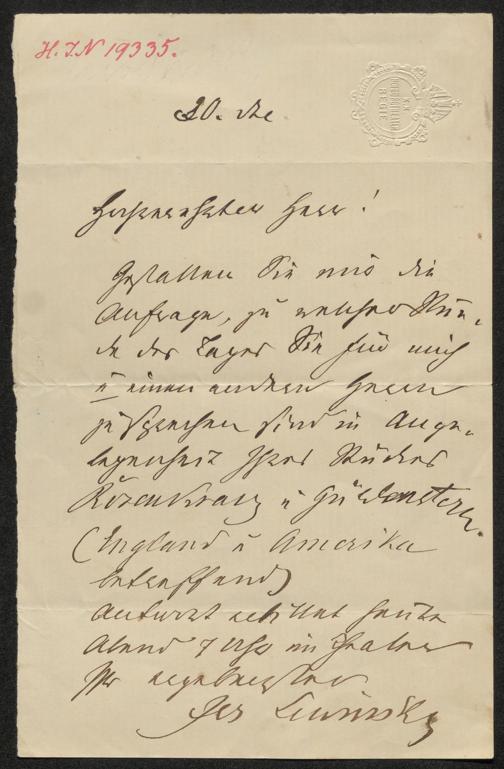 H.I.N 19335.
K.K. HOFBURGTHEATER REGIE
20. Dez
Hochverehrter Herr!
Gestatten Sie mir die
Anfrage, zu welcher Stun-
de des Tages Sie für mich
u einen andern Herrn
zu sprechen sind in Ange-
legenheit Ihres Stückes
Rosenkranz u Güldenstern.
(England u Amerika
betreffend)
Antwort erbittet heute
Abend 7 Uhr im Theater
Ihr ergebenster
Jos Lewinsky